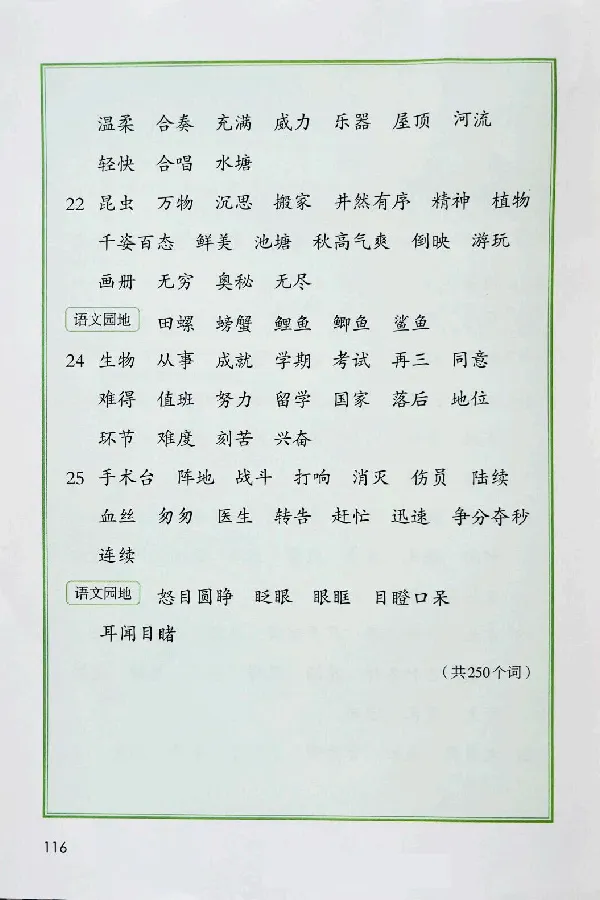 温柔 合奏 充满 威力 乐器 屋顶 河流
轻快 合唱 水塘
22 昆虫 万物 沉思 搬家 井然有序 精神 植物
千姿百态 鲜美 池塘 秋高气爽 倒映 游玩
画册 无穷 奥秘 无尽
语文园地 田螺 螃蟹 鲤鱼 鲫鱼 鲨鱼
24 生物 从事 成就 学期 考试 再三 同意
难得 值班 努力 留学 国家 落后 地位
环节 难度 刻苦 兴奋
25 手术台 阵地 战斗 打响 消灭 伤员 陆续
血丝 匆匆 医生 转告 赶忙 迅速 争分夺秒
连续
语文园地 怒目圆睁 眨眼 眼眶 目瞪口呆
耳闻目睹
（共250个词）
116